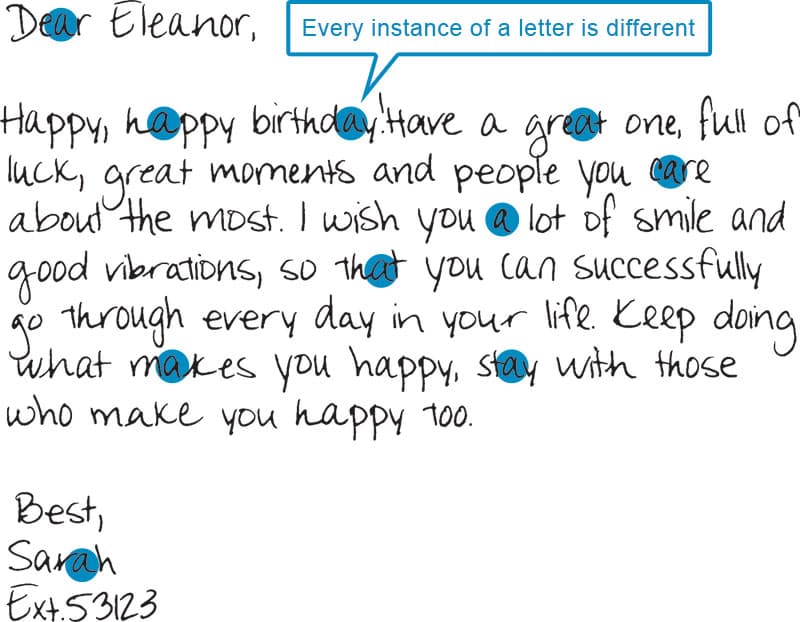 Dear Eleanor,
Every instance of a letter is different
Happy, happy birthday! Have a great one, full of
luck, great moments and people you care
about the most. I wish you a lot of smile and
good vibrations, so that you can successfully
go through every day in your life. Keep doing
what makes you happy, stay with those
who make you happy too.
Best,
Sarah
Ext.53123